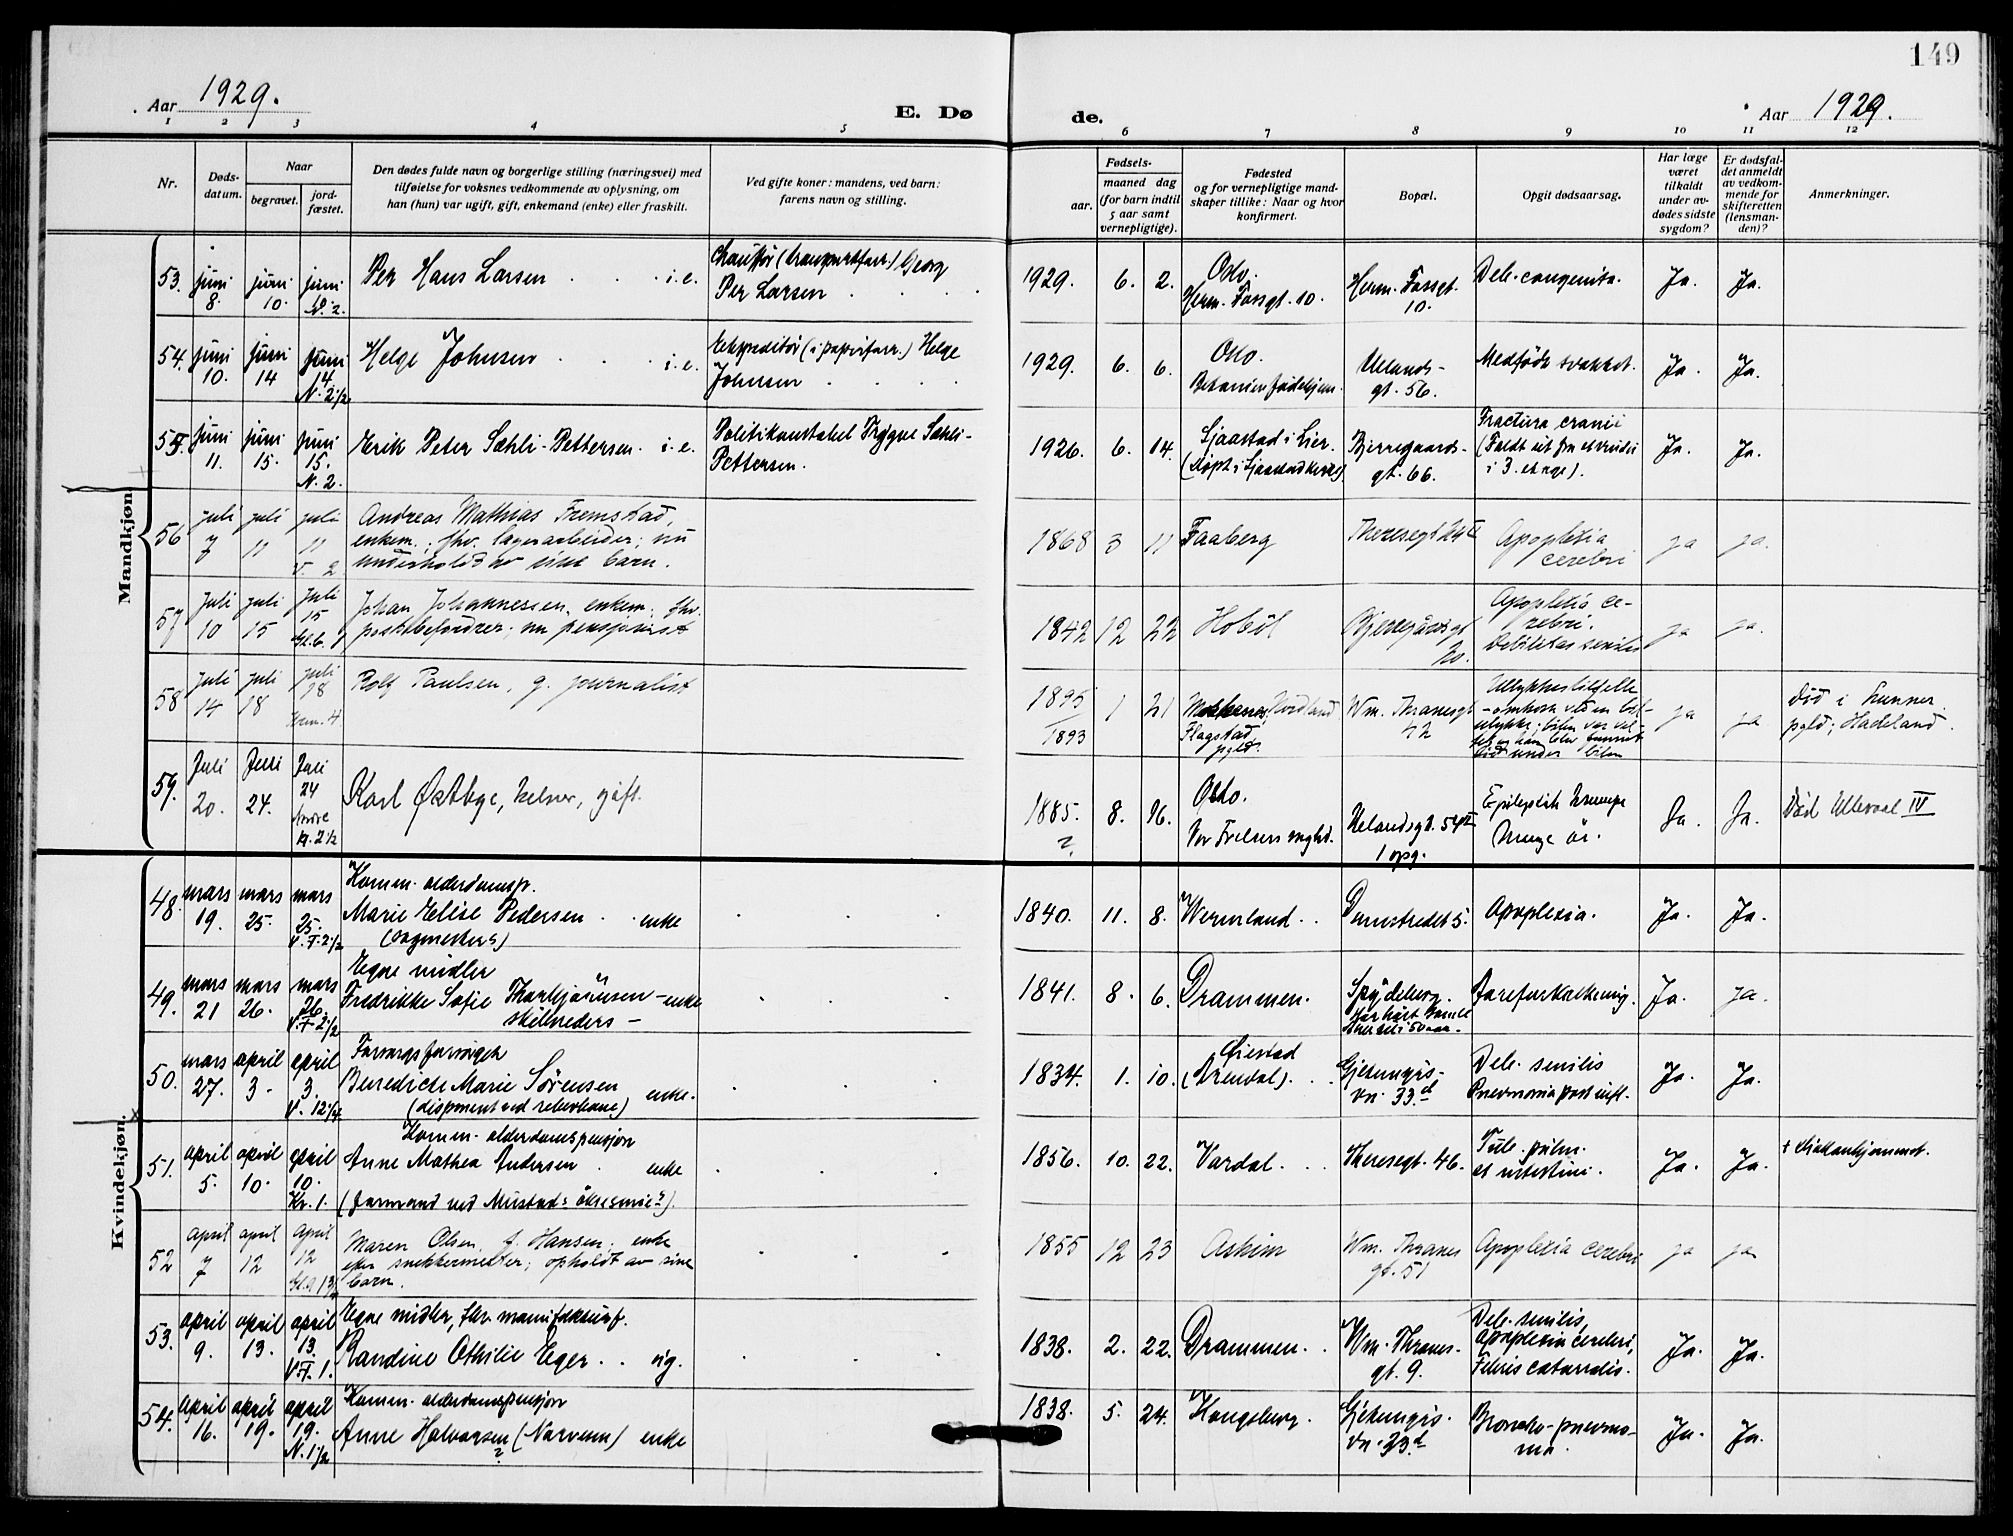 149
Aar 1929.
E. Dø
de.
Aar 1929.
1 2 3 4 5 6 7 8 9 10 11 12
Nr.
Døds-
datum.
Naar
begravet.
jord-
fæstet.
Den dødes fulde navn og borgerlige stilling (næringsvei) med
tilføielse for voksnes vedkommende av oplysning, om
han (hun) var ugift, gift, enkemand (enke) eller fraskilt.
Ved gifte koner: mandens, ved barn:
farens navn og stilling.
Fødsels-
aar.
maaned dag
(for barn indtil
5 aar samt
vernepligtige).
Fødested
og for vernepligtige mand-
skaper tillike: Naar og hvor
konfirmert.
Bopæl.
Opgit dødsaarsag.
Har læge
været
tilkaldt
under av-
dødes sidste
sygdom?
Er dødsfal-
det anmeldt
av vedkom-
mende for
skifteretten
(lensman-
den)?
Anmerkninger.
Mandkjøn.
53. juni 8. juni 10. juni N. 2.
Per Hans Larsen i.e.
Georg
Per Larsen
1929. 6. 2.
Oslo.
Herm. Fossgt. 10.
Herm. Fossgt.
10.
Deb. congenita.
Ja. Ja.
54. juni 10. juni 14 juni 14 N. 2 1/2
Helge Johnsen i.e.
Ekspeditør (i papirforr.) Helge
Johnsen
1929. 6. 6.
Oslo.
Betanien fødehjem.
Uelands-
gt. 56.
Medfødt svakhet.
Ja. Ja.
55. juni 11. juni 15. juni 15. N. 2.
Erik Peter Sæhli-Pettersen. i.e.
Politikonstabel Trygve Sæhli-
Pettersen.
1926. 6. 14.
Sjaastad i Lier.
(døpt i Sjaastad kirke)
Bjerregaards-
gt. 66.
Fractura cranii
(Faldt ut fra et vindu
i 3. etage).
Ja. Ja.
56 juli 7 juli 11 juli 11 V. 2
Andreas Mathias Fremstad,
enkem.; fhv. lagerarbeider; nu
underholdt av sine barn.
1868 3 11
Faaberg
Theresegt 24 II
Apoplexia
cerebri
ja ja.
57 juli 10 juli 15 juli 15
Johan Johannessen, enkem.; fhv.
postbefordrer; nu pensjonist
1842 12 22
Hobøl
Bjerregårdsgt
20.
Apoplexia ce-
rebri.
Debilitas senilis
ja ja.
58 juli 14 juli 18 juli 18 Krem. 4
Rolf Paulsen, g. journalist
1895
1893
1 21
Nordland
Flagstad
pgld.
Wm. Thranesgt
42
Ulykkestilfelle
- omkom ved en bil-
ulykke; bilen var vel-
tet og han blev funnet
død under bilen
ja ja
Død i Lunner
pgld; Hadeland.
59. Juli 20. Juli 24. Juli 24 kl. 2 1/2
Karl Østbye, kelner, gift.
1885. ? 8. 16.
Oslo.
Vor Frelsers mghd.
Uelandsgt. 54 II
1 opg.
Epileptisk krampe
mange år.
Ja. Ja.
Død Ullevaal IV
Kvindekjøn.
48. mars 19. mars 25. mars 25. V.F. 2 1/2
Komm. alderdomsp.
Marie Elise Pedersen enke
(sagmesters)
1840. 11. 8.
Wermland.
Damstredet 5.
Apoplexia.
Ja. Ja.
49. mars 21 mars 26. mars 26. V.F. 2 1/2
Egne midler
Fredrikke Sofie Thorbjørnsen - enke
skibreders -
1841. 8. 6.
Drammen.
Spydeberg.
Aareforkalkning.
Ja. ja.
50. mars 27. april 3. april 3. V. 12 1/4
Forsorgsforsørget
Benedicte Marie Sørensen enke.
1834. 1. 10.
Øiestad
(Arendal).
Gjetemyrs-
vn. 33.d
Deb. senilis
Pneumonia post infl.
Ja. Ja.
51. april 5. april 10. april 10. Kr. 1.
Komm. alderdomspensjon
Anne Mathea Andersen enke
(formand ved Mustads øksesmie?).
1856. 10. 22.
Vardal.
Theresegt. 46.
Tub. pulm.
et intestini.
Ja. Ja.
52 april 7 april 12 april 12
Maren Olsen f. Hansen; enke
efter snekkermester; opholdt av sine
barn.
1855 12 23
Askim
Wm. Thranes
gt. 51
Apoplexia cerebri
ja ja
53. april 9. april 13. april 13. V.F. 1.
Egne midler, fhv. manufakturf.
Randine Othilie Eger. ug.
1838. 2. 22.
Drammen.
Wm. Thranes-
gt. 9.
Deb. senilis,
apoplexia cerebri,
Febris catarralis.
Ja. Ja.
54. april 16. april 19. april 19. N. 1 1/2
Komm. alderdomspensjon
Anne Halvorsen (Narveson) enke
?
1838. 5. 24.
Kongsberg.
Gjetemyrs-
vn. 33.d
Broncho-pneumo-
nia.
Ja. Ja.